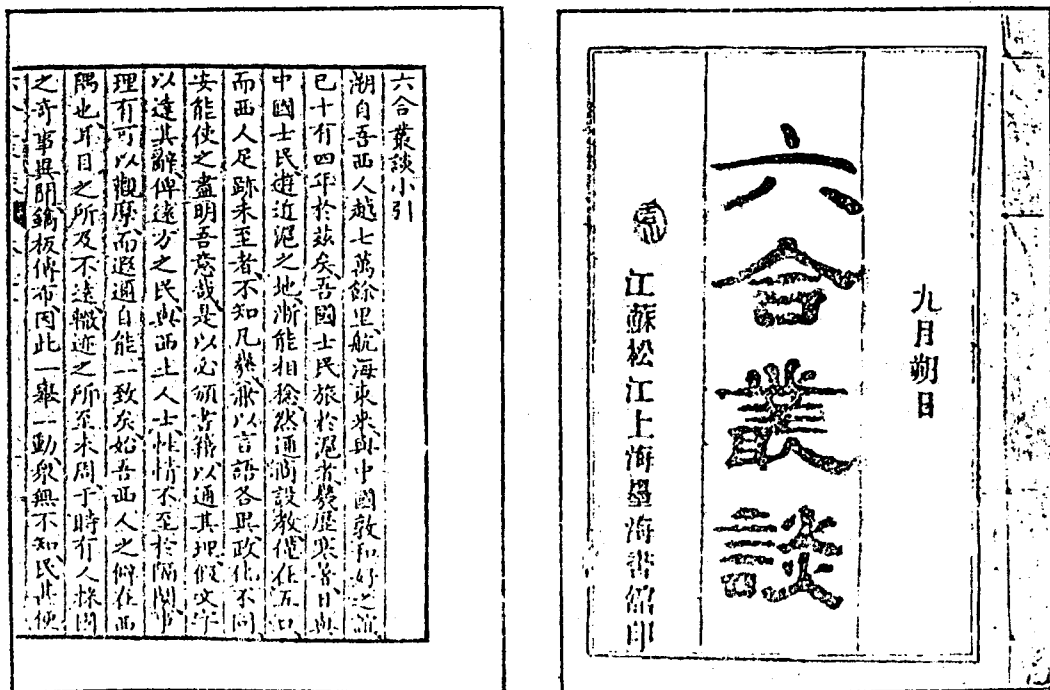 九月朔日
六合叢談
江蘇松江上海墨海書館印
六合叢談小引
溯自吾西人越七萬餘里航海東來與中國敦和好之誼
已十有四年於茲矣吾國士民旅於滬者幾歷寒暑日與
中國士民遊近滬之地漸能相稔然通商設教僅在五口
而西人足跡未至者不知凡幾兼以言語各異政化不同
安能使之盡明吾意哉是以必須書籍以通其理假文字
以達其辭俾遠方之民與西土人士性情不至於隔閡事
理有可以觀摩而遐邇自能一致矣始吾西人之僻在西
隅也耳目之所及不遠轍迹之所至未周于時有人採國
之奇事異聞鐫板傳布因此一舉一動衆無不知民甚便